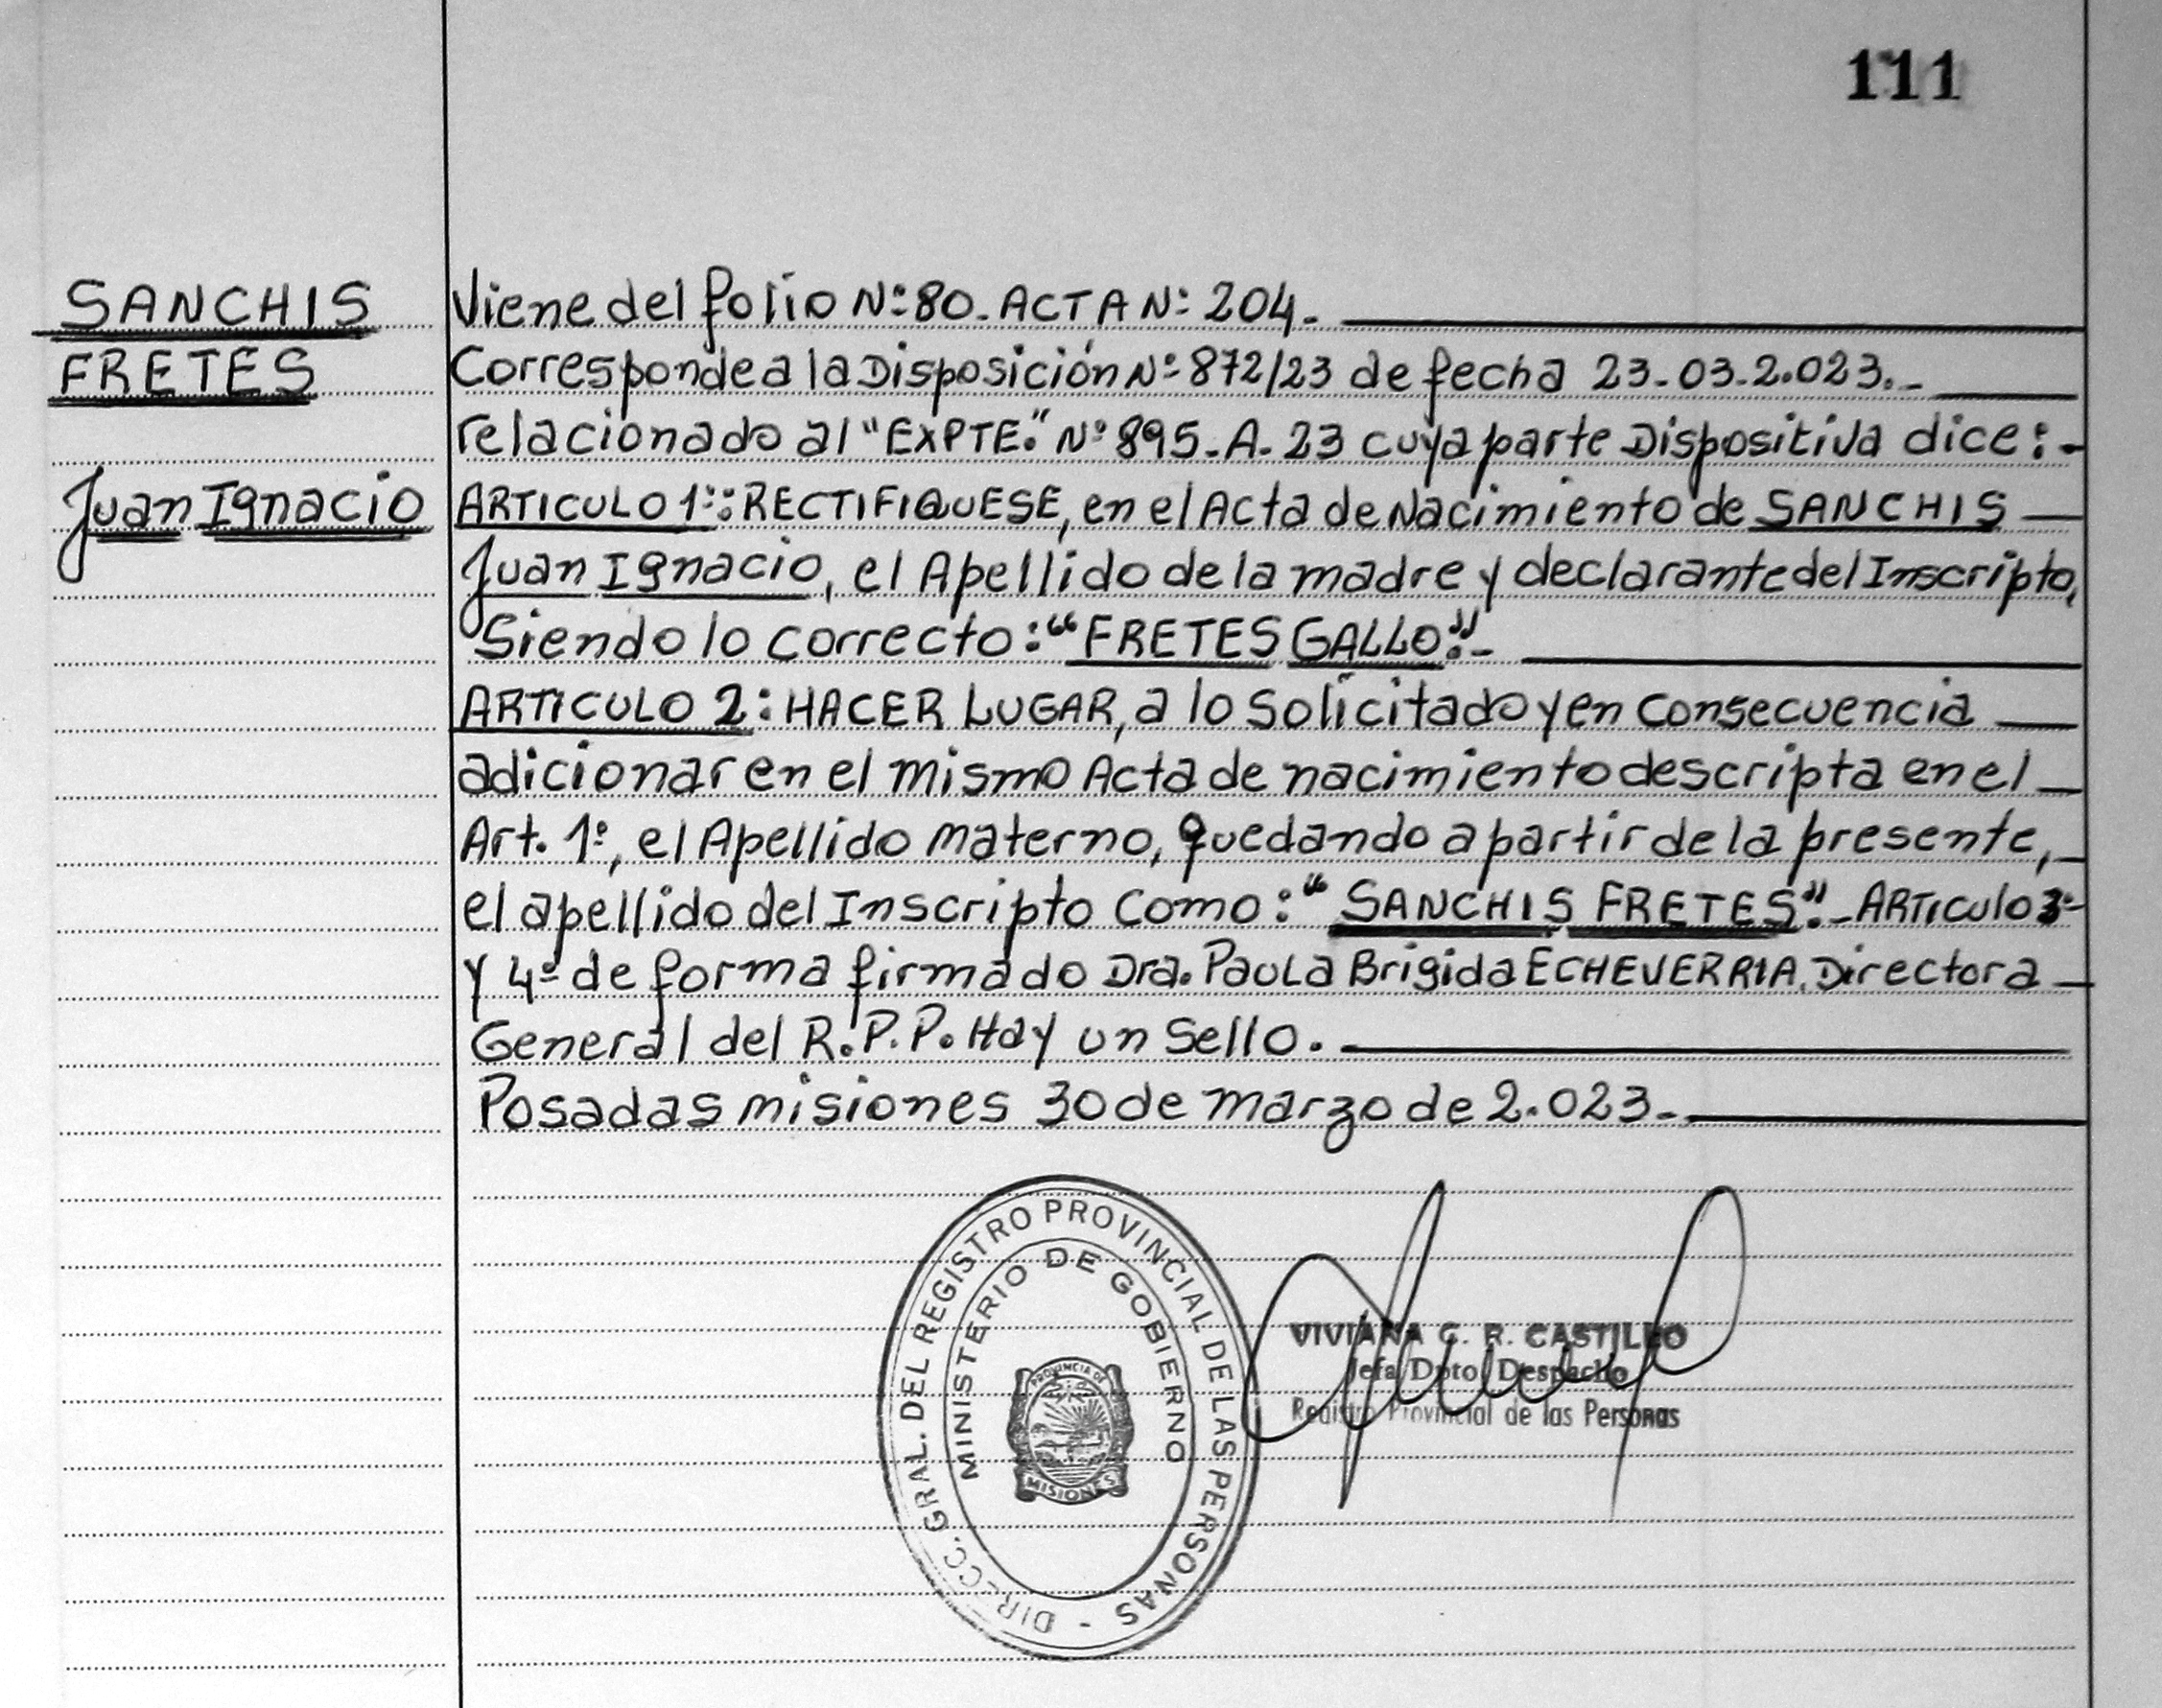 111
SANCHIS
FRETES
Juan Ignacio
Viene del folio Nº: 80. ACTA Nº: 204.
Corresponde a la Disposición Nº: 872/23 de fecha 23-03-2.023.-
relacionado al "EXPTE." Nº 895-A-23 cuya parte Dispositiva dice:-
ARTICULO 1º: RECTIFIQUESE, en el Acta de Nacimiento de SANCHIS
Juan Ignacio, el Apellido de la madre y declarante del Inscripto,
Siendo lo correcto: "FRETES GALLO".-
ARTICULO 2: HACER LUGAR, a lo Solicitado y en Consecuencia
adicionar en el mismo Acta de nacimiento descripta en el
Art. 1º, el Apellido Materno, quedando a partir de la presente,
el apellido del Inscripto Como: "SANCHIS FRETES".- ARTICULO 3º
y 4º de forma firmado Dra. PAULA Brigida ECHEVERRIA, Directora
General del R.P.P. Hay un Sello.
Posadas misiones 30 de marzo de 2.023.-
DIRECC. GRAL. DEL REGISTRO PROVINCIAL DE LAS PERSONAS -
MINISTERIO DE GOBIERNO
PROVINCIA DE
MISIONES
VIVIANA G. R. CASTILLO
Jefa Dpto Despacho
Registro Provincial de las Personas